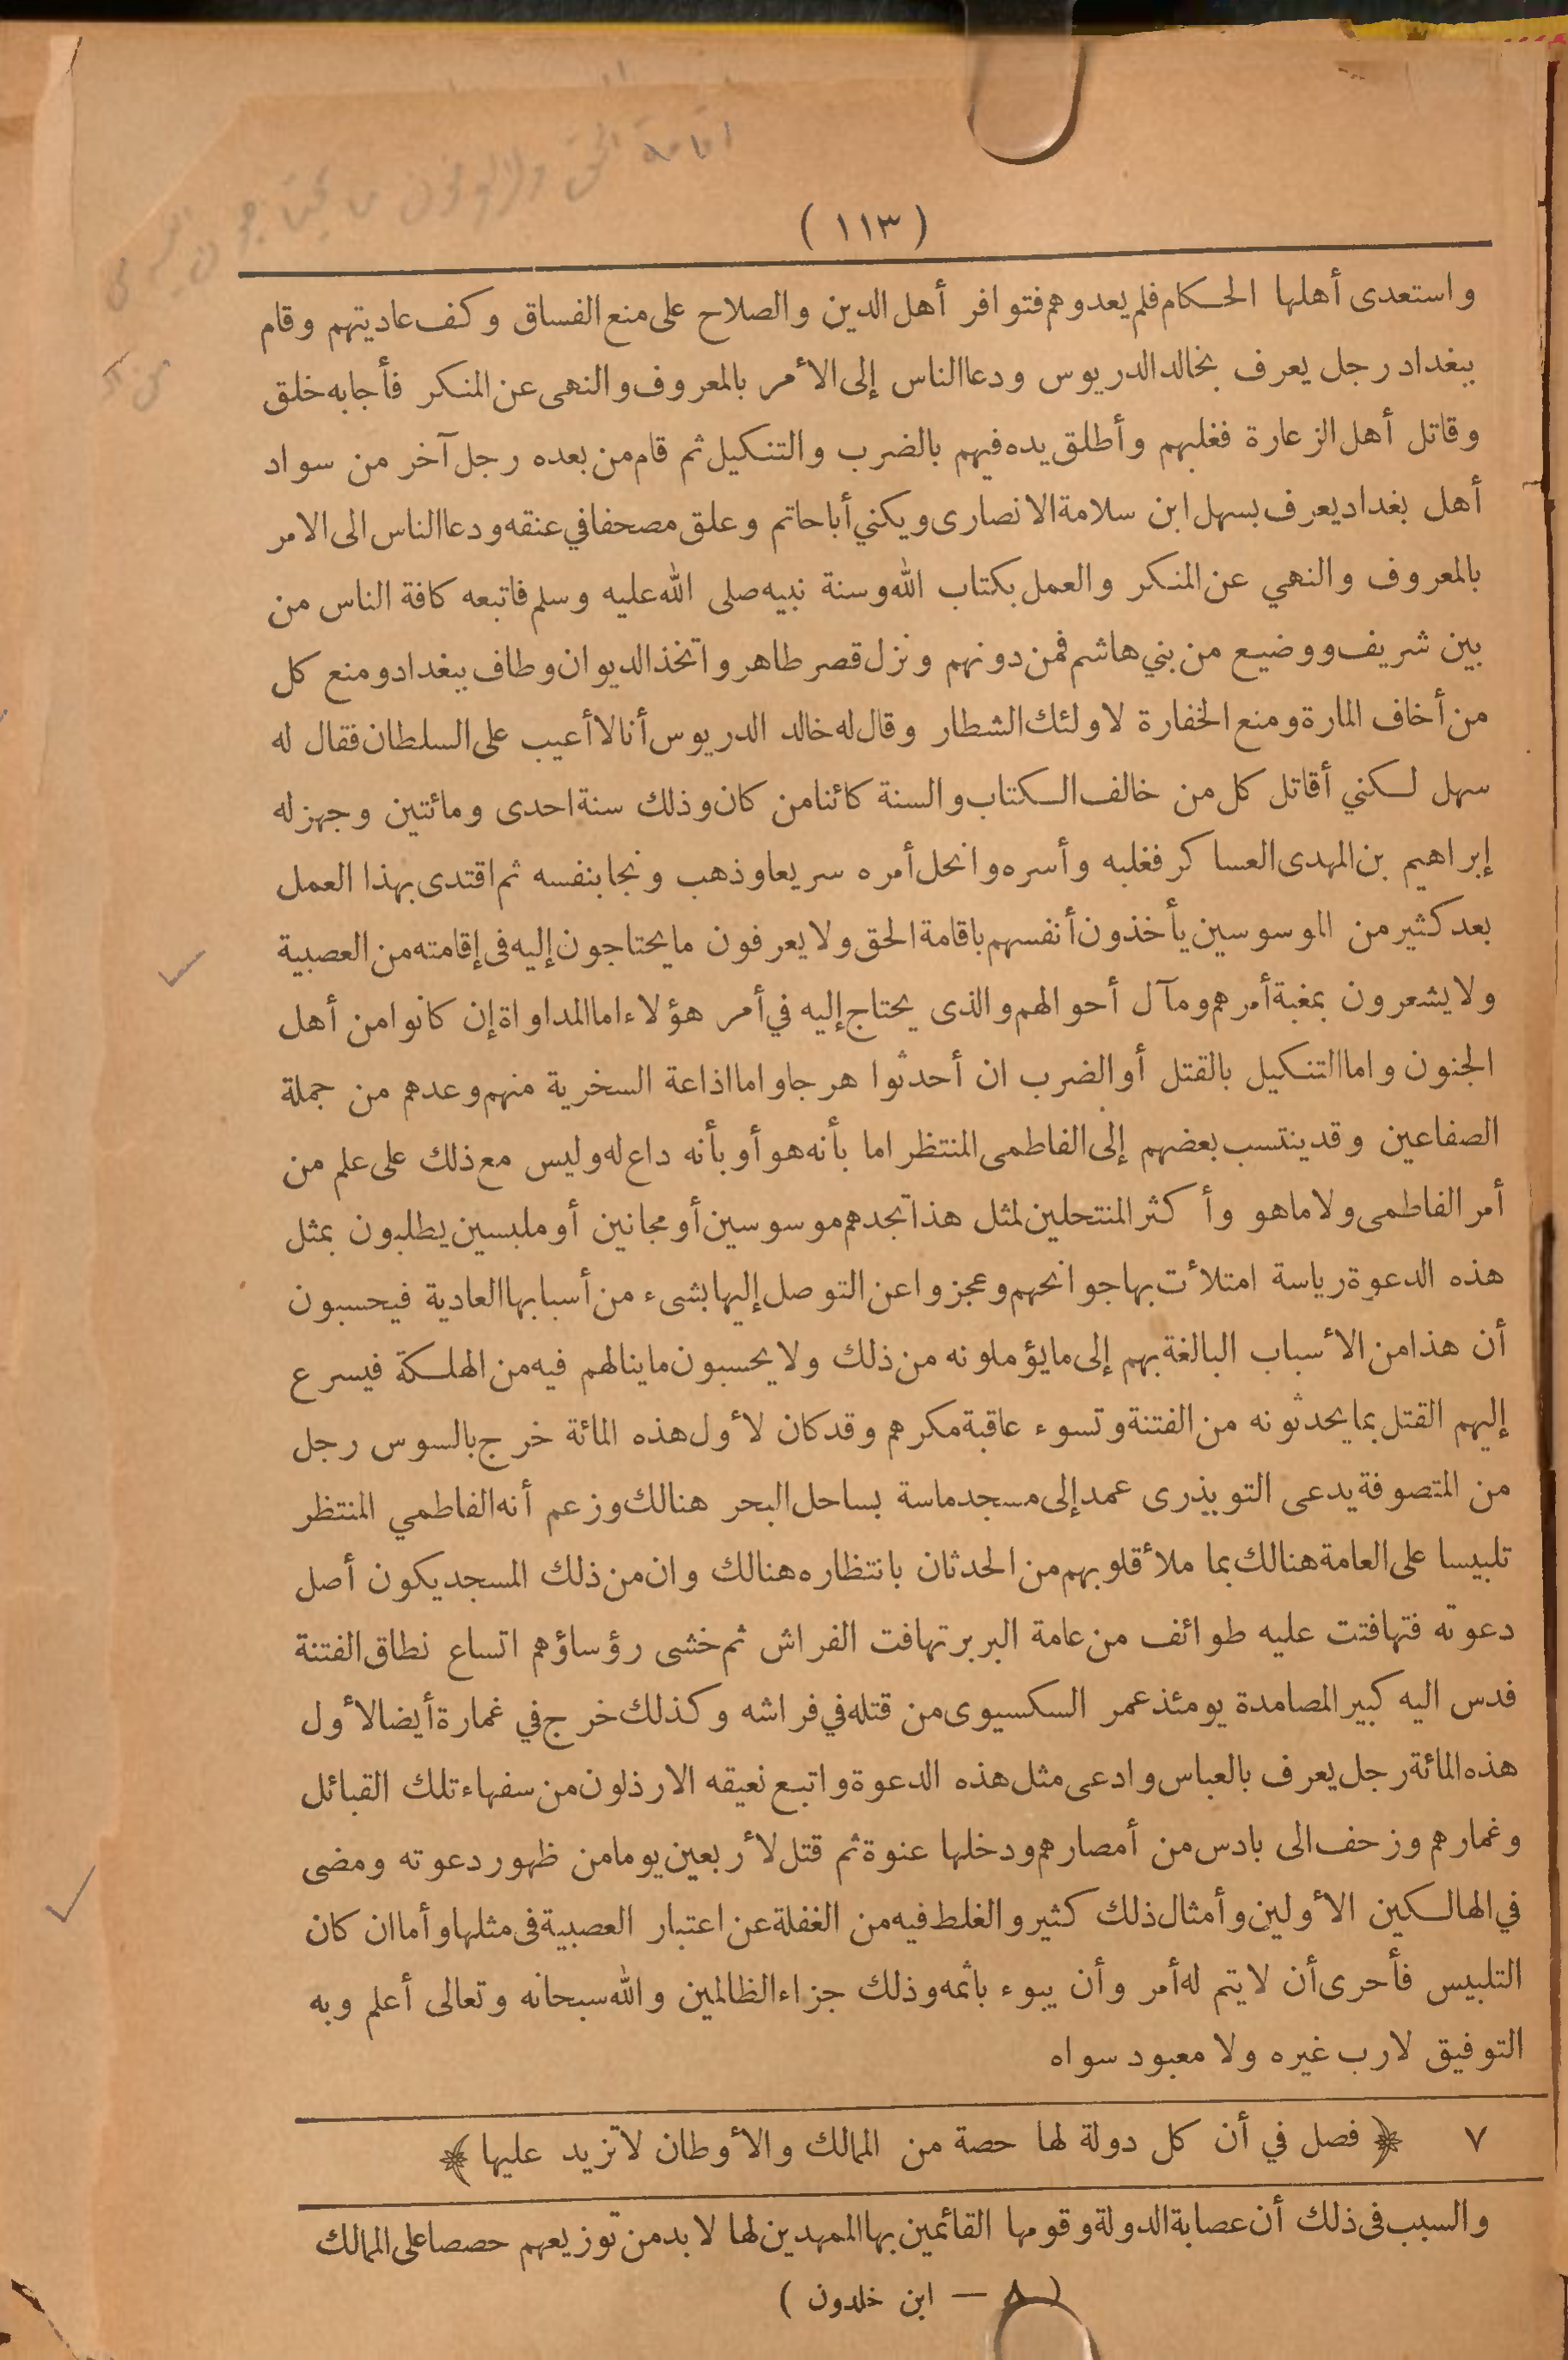 ( ١١٣ )
واستعدى أهلها الحكام فلم يعدوهم فتوافر أهل الدين والصلاح على منع الفساق وكف عاديتهم وقام
ببغداد رجل يعرف بخالد الدريوس ودعا الناس إلى الأمر بالمعروف والنهى عن المنكر فأجابه خلق
وقاتل أهل الزعارة فغلبهم وأطلق يده فيهم بالضرب والتنكيل ثم قام من بعده رجل آخر من سواد
أهل بغداد يعرف بسهل ابن سلامة الانصارى ويكني أبا حاتم وعلق مصحفا في عنقه ودعا الناس الى الامر
بالمعروف والنهي عن المنكر والعمل بكتاب الله وسنة نبيه صلى الله عليه وسلم فاتبعه كافة الناس من
بين شريف ووضيع من بني هاشم فمن دونهم ونزل قصر طاهر واتخذ الديوان وطاف ببغداد ومنع كل
من أخاف المارة ومنع الخفارة لاولئك الشطار وقال له خالد الدريوس أنا لا أعيب على السلطان فقال له
سهل لكني أقاتل كل من خالف الكتاب والسنة كائنا من كان وذلك سنة احدى ومائتين وجهز له
إبراهيم بن المهدى العساكر فغلبه وأسره وانحل أمره سريعا وذهب ونجا بنفسه ثم اقتدى بهذا العمل
بعد كثير من الموسوسين يأخذون أنفسهم باقامة الحق ولا يعرفون ما يحتاجون إليه فى إقامته من العصبية
ولا يشعرون بمغبة أمرهم ومآل أحوالهم والذى يحتاج إليه في أمر هؤلاء اما المداواة إن كانوا من أهل
الجنون واما التنكيل بالقتل أو الضرب ان أحدثوا هرجا واما اذاعة السخرية منهم وعدهم من جملة
الصفاعين وقد ينتسب بعضهم إلى الفاطمى المنتظر اما بأنه هو أو بأنه داع له وليس مع ذلك على علم من
أمر الفاطمى ولا ما هو وأكثر المنتحلين لمثل هذا تجدهم موسوسين أو مجانين أو ملبسين يطلبون بمثل
هذه الدعوة رياسة امتلأت بها جوانحهم وعجزوا عن التوصل إليها بشىء من أسبابها العادية فيحسبون
أن هذا من الأسباب البالغة بهم إلى ما يؤملونه من ذلك ولا يحسبون ما ينالهم فيه من الهلكة فيسرع
إليهم القتل بما يحدثونه من الفتنة وتسوء عاقبة مكرهم وقد كان لأول هذه المائة خرج بالسوس رجل
من المتصوفة يدعى التوبذرى عمد إلى مسجد ماسة بساحل البحر هنالك وزعم أنه الفاطمي المنتظر
تلبيسا على العامة هنالك بما ملأ قلوبهم من الحدثان بانتظاره هنالك وان من ذلك المسجد يكون أصل
دعوته فتهافتت عليه طوائف من عامة البربر تهافت الفراش ثم خشى رؤساؤهم اتساع نطاق الفتنة
فدس اليه كبير المصامدة يومئذ عمر السكسيوى من قتله في فراشه وكذلك خرج في غمارة أيضا لأول
هذه المائة رجل يعرف بالعباس وادعى مثل هذه الدعوة واتبع نعيقه الارذلون من سفهاء تلك القبائل
وغمارهم وزحف الى بادس من أمصارهم ودخلها عنوة ثم قتل لأربعين يوما من ظهور دعوته ومضى
في الهالكين الأولين وأمثال ذلك كثير والغلط فيه من الغفلة عن اعتبار العصبية فى مثلها وأما ان كان
التلبيس فأحرى أن لا يتم له أمر وأن يبوء باثمه وذلك جزاء الظالمين والله سبحانه وتعالى أعلم وبه
التوفيق لا رب غيره ولا معبود سواه
٧ ﴿ فصل في أن كل دولة لها حصة من الممالك والأوطان لا تزيد عليها ﴾
والسبب فى ذلك أن عصابة الدولة وقومها القائمين بها الممهدين لها لا بد من توزيعهم حصصا على الممالك
( ٨ — ابن خلدون )